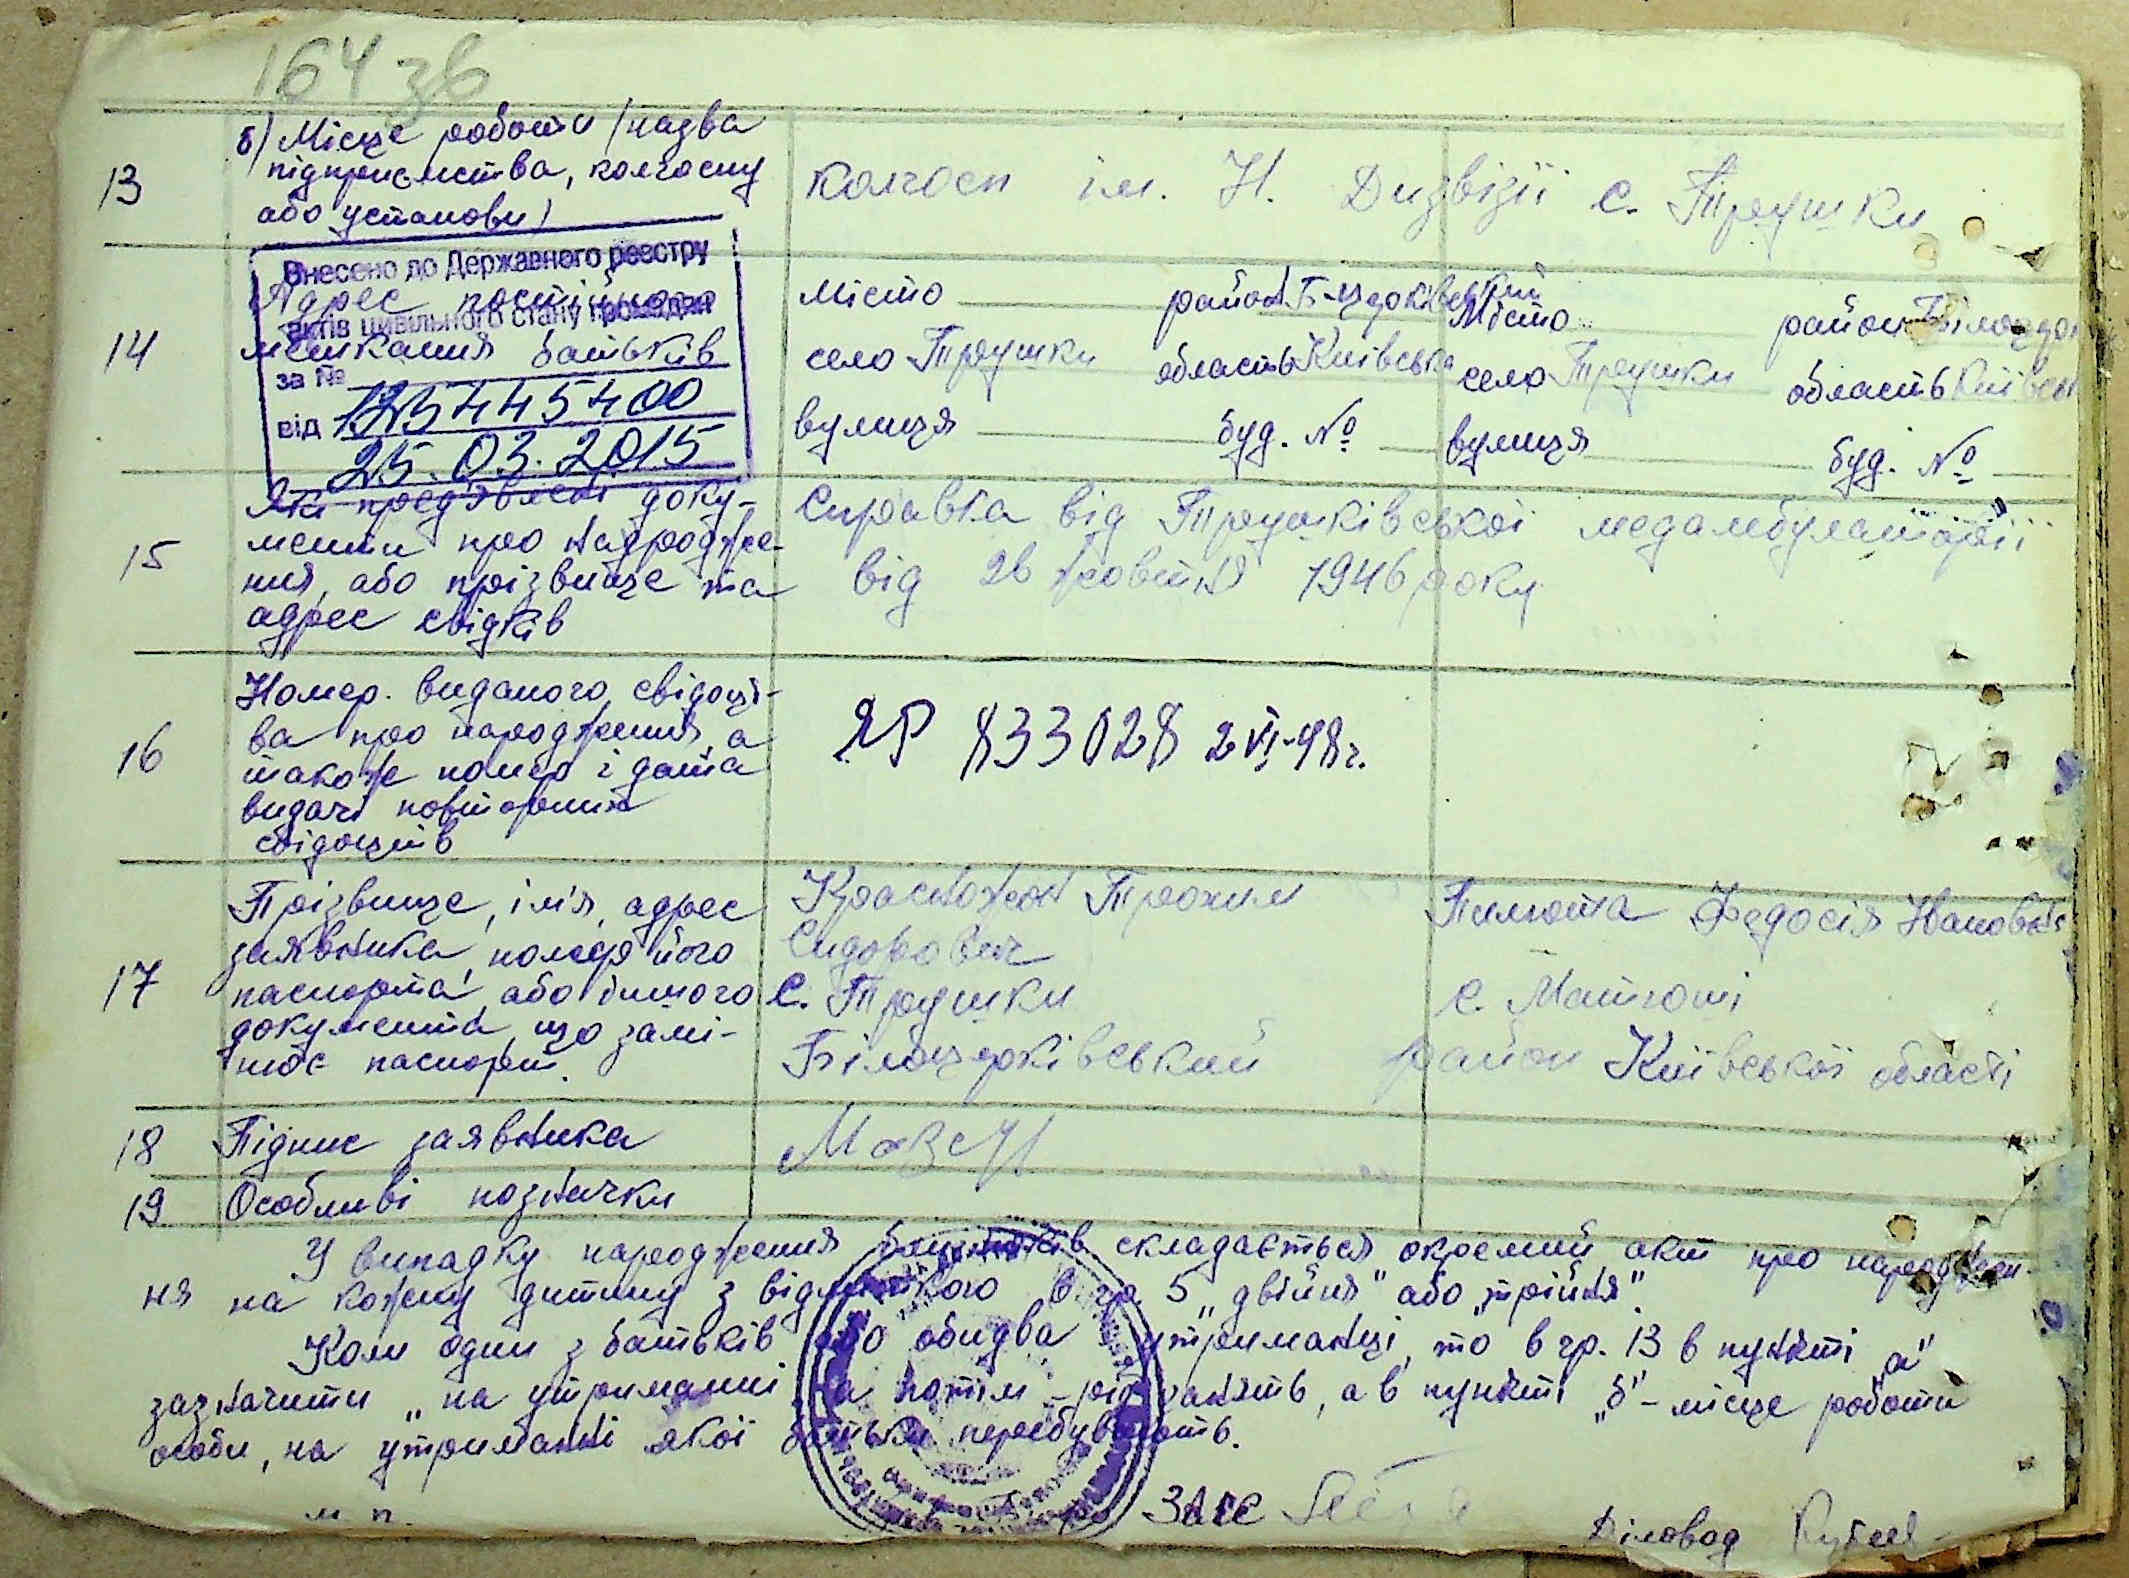 164 зв
13
б) Місце роботи (назва
підприємства, колгоспу
або установи)
колгосп ім. Н. Дизвізії с. Трушки
Внесено до Державного реєстру
актів цивільного стану громадян
за № 1254445400
від 25.03.2015
14
Адрес постійного
мешкання батьків
місто район Б-Церківський
село Трушки область Київська
вулиця буд. №
Місто район Білоцер
село Трушки область Київськ
вулиця буд. №
15
Які пред'явлені доку-
менти про народже-
ння, або прізвище та
адрес свідків
Справка від Трушківської медамбулаторії
від 26 жовтня 1946 року
16
Номер виданого свідоцт-
ва про народження, а
також номер і дата
видачі повторних
свідоцтв
ЯР 833028 2 VI-48 г.
17
Прізвище, ім'я, адрес
заявника, номер його
паспорта або іншого
документа, що замі-
нює паспорт.
Красножон Трохим
Сидорович
с. Трушки
Білоцерківський район Київської області
Пилюта Федосія Івановна
с. Матюші
18
Підпис заявника
19
Особливі позначки
У випадку народження близнюків складається окремий акт про народжен-
ня на кожну дитину з відміткою в гр. 5 „двійня" або „трійня".
Коли один з батьків або обидва утриманці, то в гр. 13 в пункті „а"
зазначити „на утриманні, а потім – рід занять, а в пункті „б" – місце роботи
особи, на утриманні якої батьки перебувають.
м п.
ЗАГС
Діловод